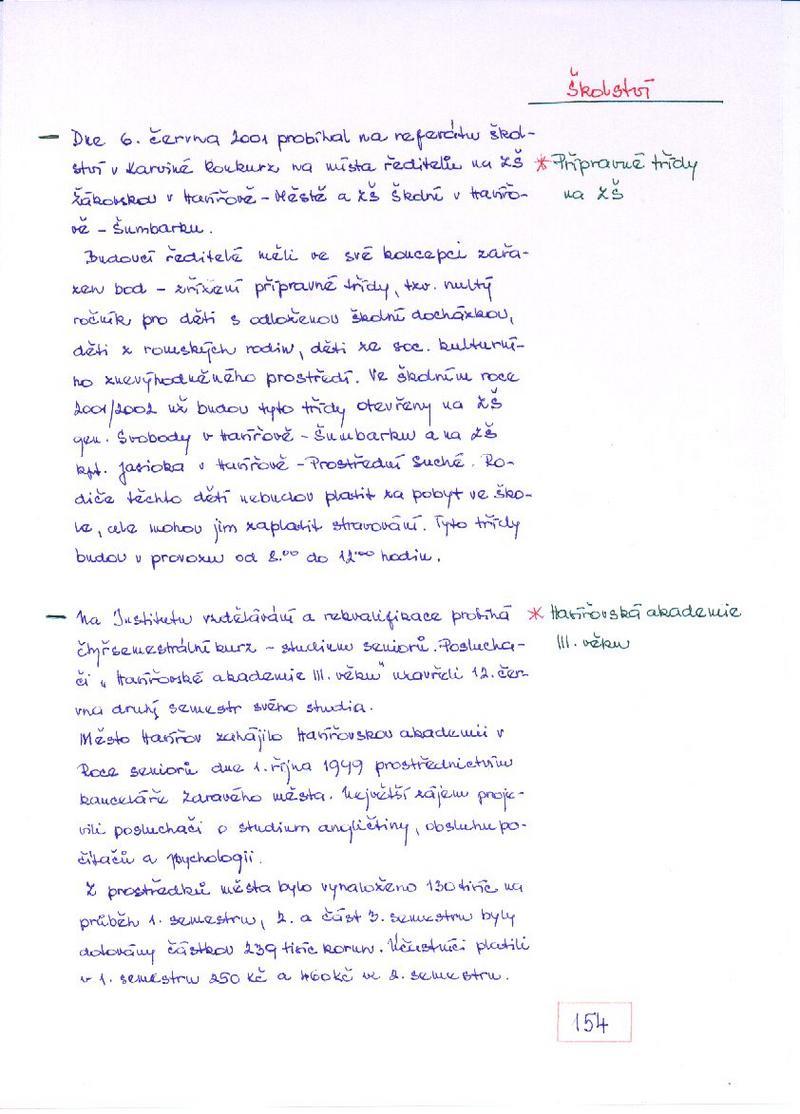 Školství
— Dne 6. června 2001 probíhal na referátu škol-
ství v Karviné konkurz na místa ředitelů na ZŠ
* Přípravné třídy
žákovskou v Havířově - Městě a ZŠ Školní v Havířo-
na ZŠ
vě - Šumbarku.
Budoucí ředitelé měli ve své koncepci zařa-
zen bod - zřízení přípravné třídy, tzv. nultý
ročník pro děti s odloženou školní docházkou,
děti z romských rodin, děti ze soc. kulturní-
ho znevýhodněného prostředí. Ve školním roce
2001/2002 už budou tyto třídy otevřeny na ZŠ
gen. Svobody v Havířově - Šumbarku a na ZŠ
kpt. Jasioka v Havířově - Prostřední Suché. Ro-
diče těchto dětí nebudou platit za pobyt ve ško-
le, ale mohou jim zaplatit stravování. Tyto třídy
budou v provozu od 8.00 do 12.00 hodin.
— Na Institutu vzdělávání a rekvalifikace probíhá
* Havířovská akademie
čtyřsemestrální kurz - studium seniorů. Poslucha-
III. věku
či "Havířovské akademie III. věku" uzavřeli 12. čer-
vna druhý semestr svého studia.
Město Havířov zahájilo Havířovskou akademii v
Roce seniorů dne 1. října 1999 prostřednictvím
kanceláře Zdravého města. Největší zájem proje-
vili posluchači o studium angličtiny, obsluhu po-
čítačů a psychologii.
Z prostředků města bylo vynaloženo 130 tisíc na
průběh 1. semestru, 2. a část 3. semestru byly
dotovány částkou 239 tisíc korun. Účastníci platili
v 1. semestru 250 Kč a 460 Kč ve 2. semestru.
154